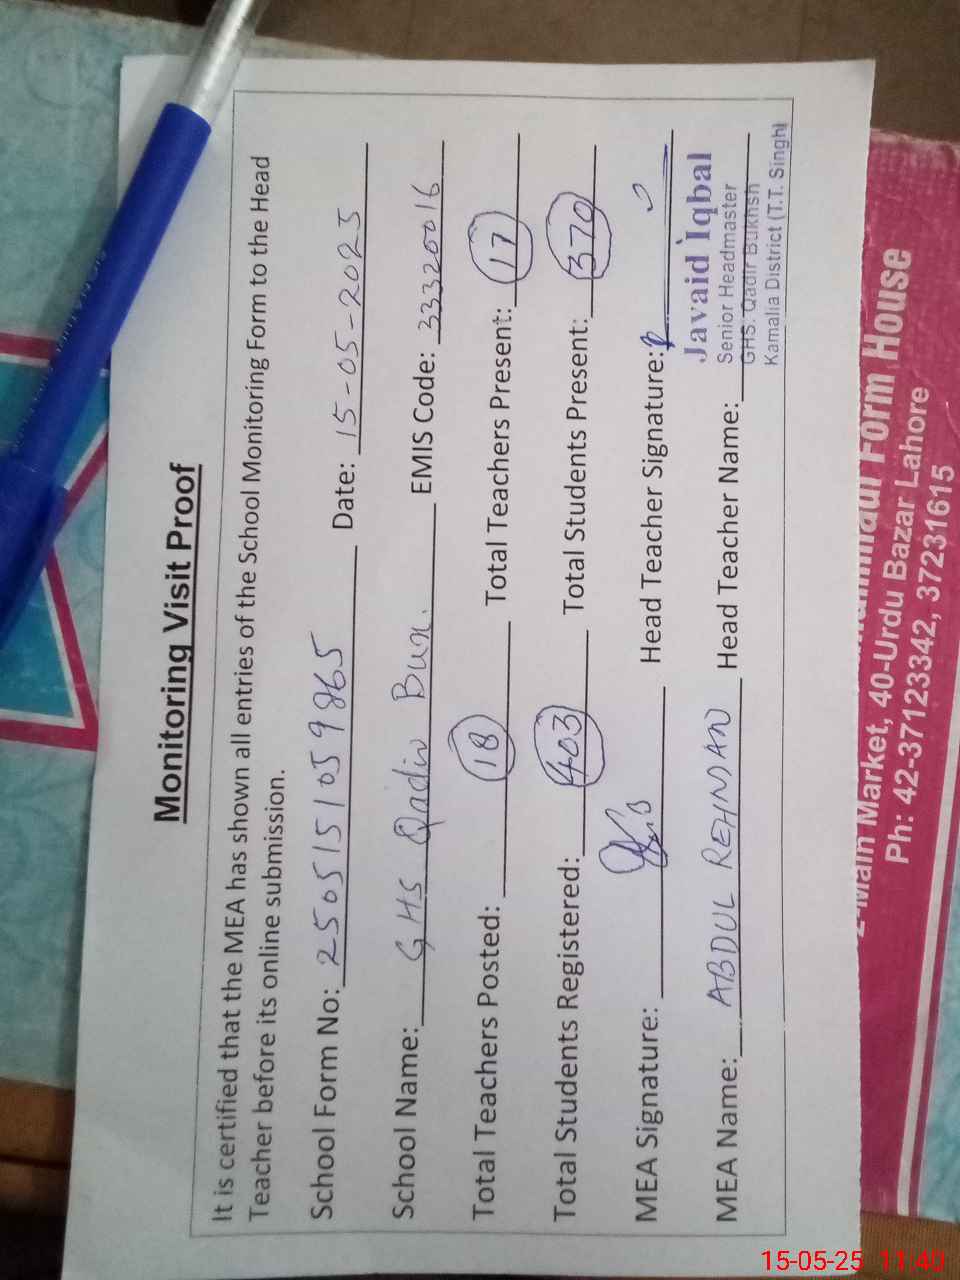 Monitoring Visit Proof
It is certified that the MEA has shown all entries of the School Monitoring Form to the Head
Teacher before its online submission.
School Form No: 2505151059865 Date: 15-05-2025
School Name: GHS Qadir Bux. EMIS Code: 33320016
Total Teachers Posted: 18 Total Teachers Present: 17
Total Students Registered: 403 Total Students Present: 370
MEA Signature: Head Teacher Signature:
MEA Name: ABDUL REHMAN Head Teacher Name:
Javaid Iqbal
Senior Headmaster
GHS: Qadir Bukhsh
Kamalia District (T.T. Singh)
Form House
2-Main Market, 40-Urdu Bazar Lahore
Ph: 42-37123342, 37231615
15-05-25 11:40